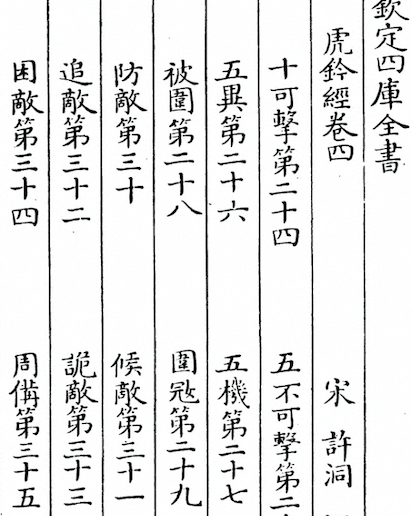 欽定四庫全書
虎鈐經卷四 宋 許洞
十可擊第二十四 五不可擊第二
五異第二十六 五機第二十七
被圍第二十八 圍冦第二十九
防敵第三十 候敵第三十一
追敵第三十二 詭敵第三十三
困敵第三十四 周備第三十五